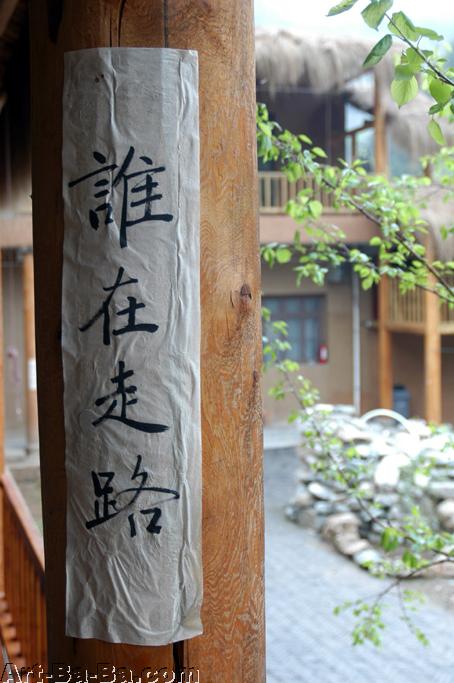 誰在走路
Art-Ba-Ba.com